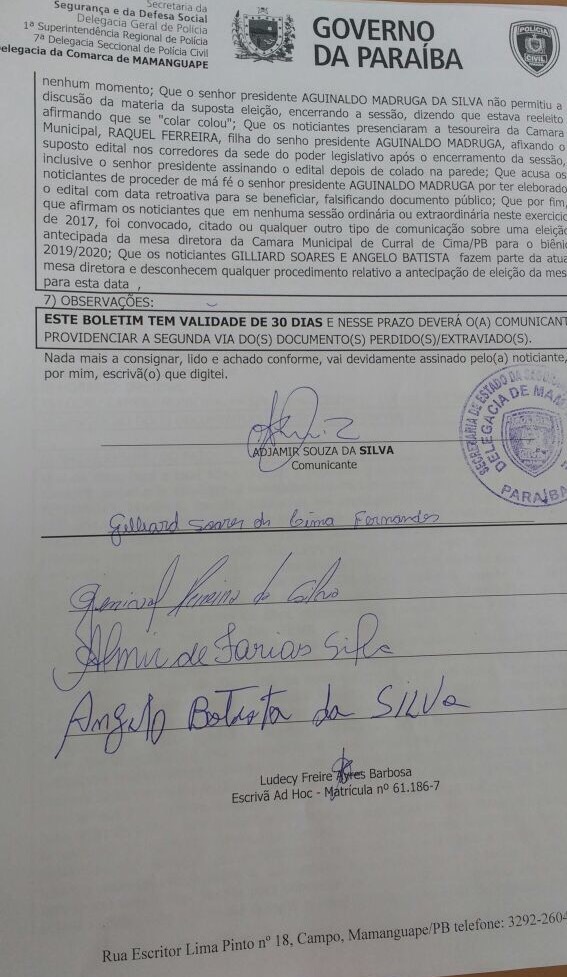 Secretaria da
Segurança e da Defesa Social
Delegacia Geral de Polícia
1ª Superintendência Regional de Polícia
7ª Delegacia Seccional de Polícia Civil
elegacia da Comarca de MAMANGUAPE
GOVERNO
DA PARAÍBA
POLÍCIA
CIVIL
nenhum momento; Que o senhor presidente AGUINALDO MADRUGA DA SILVA não permitiu a
discusão da materia da suposta eleição, encerrando a sessão, dizendo que estava reeleito
afirmando que se "colar colou"; Que os noticiantes presenciaram a tesoureira da Camara
Municipal, RAQUEL FERREIRA, filha do senho presidente AGUINALDO MADRUGA, afixando o
suposto edital nos corredores da sede do poder legislativo após o encerramento da sessão,
inclusive o senhor presidente assinando o edital depois de colado na parede; Que acusa os
noticiantes de proceder de má fé o senhor presidente AGUINALDO MADRUGA por ter elaborado
o edital com data retroativa para se beneficiar, falsificando documento público; Que por fim,
que afirmam os noticiantes que em nenhuma sessão ordinária ou extraordinária neste exercicio
de 2017, foi convocado, citado ou qualquer outro tipo de comunicação sobre uma eleição
antecipada da mesa diretora da Camara Municipal de Curral de Cima/PB para o biêni
2019/2020; Que os noticiantes GILLIARD SOARES E ANGELO BATISTA fazem parte da atua
mesa diretora e desconhecem qualquer procedimento relativo a antecipação de eleição da mes
para esta data ,
7) OBSERVAÇÕES:
ESTE BOLETIM TEM VALIDADE DE 30 DIAS E NESSE PRAZO DEVERÁ O(A) COMUNICANT
PROVIDENCIAR A SEGUNDA VIA DO(S) DOCUMENTO(S) PERDIDO(S)/EXTRAVIADO(S).
Nada mais a consignar, lido e achado conforme, vai devidamente assinado pelo(a) noticiante,
por mim, escrivã(o) que digitei.
SECRETARIA DE ESTADO DA
DELEGACIA DE MAM
PARAÍBA
ADJAMIR SOUZA DA SILVA
Comunicante
Gilliard Soares de Lima Fernandes
da Silva
Almir de Farias Silva
Angelo Batista da SILVA
Ludecy Freire Ayres Barbosa
Escrivã Ad Hoc - Matrícula nº 61.186-7
Rua Escritor Lima Pinto nº 18, Campo, Mamanguape/PB telefone: 3292-2604